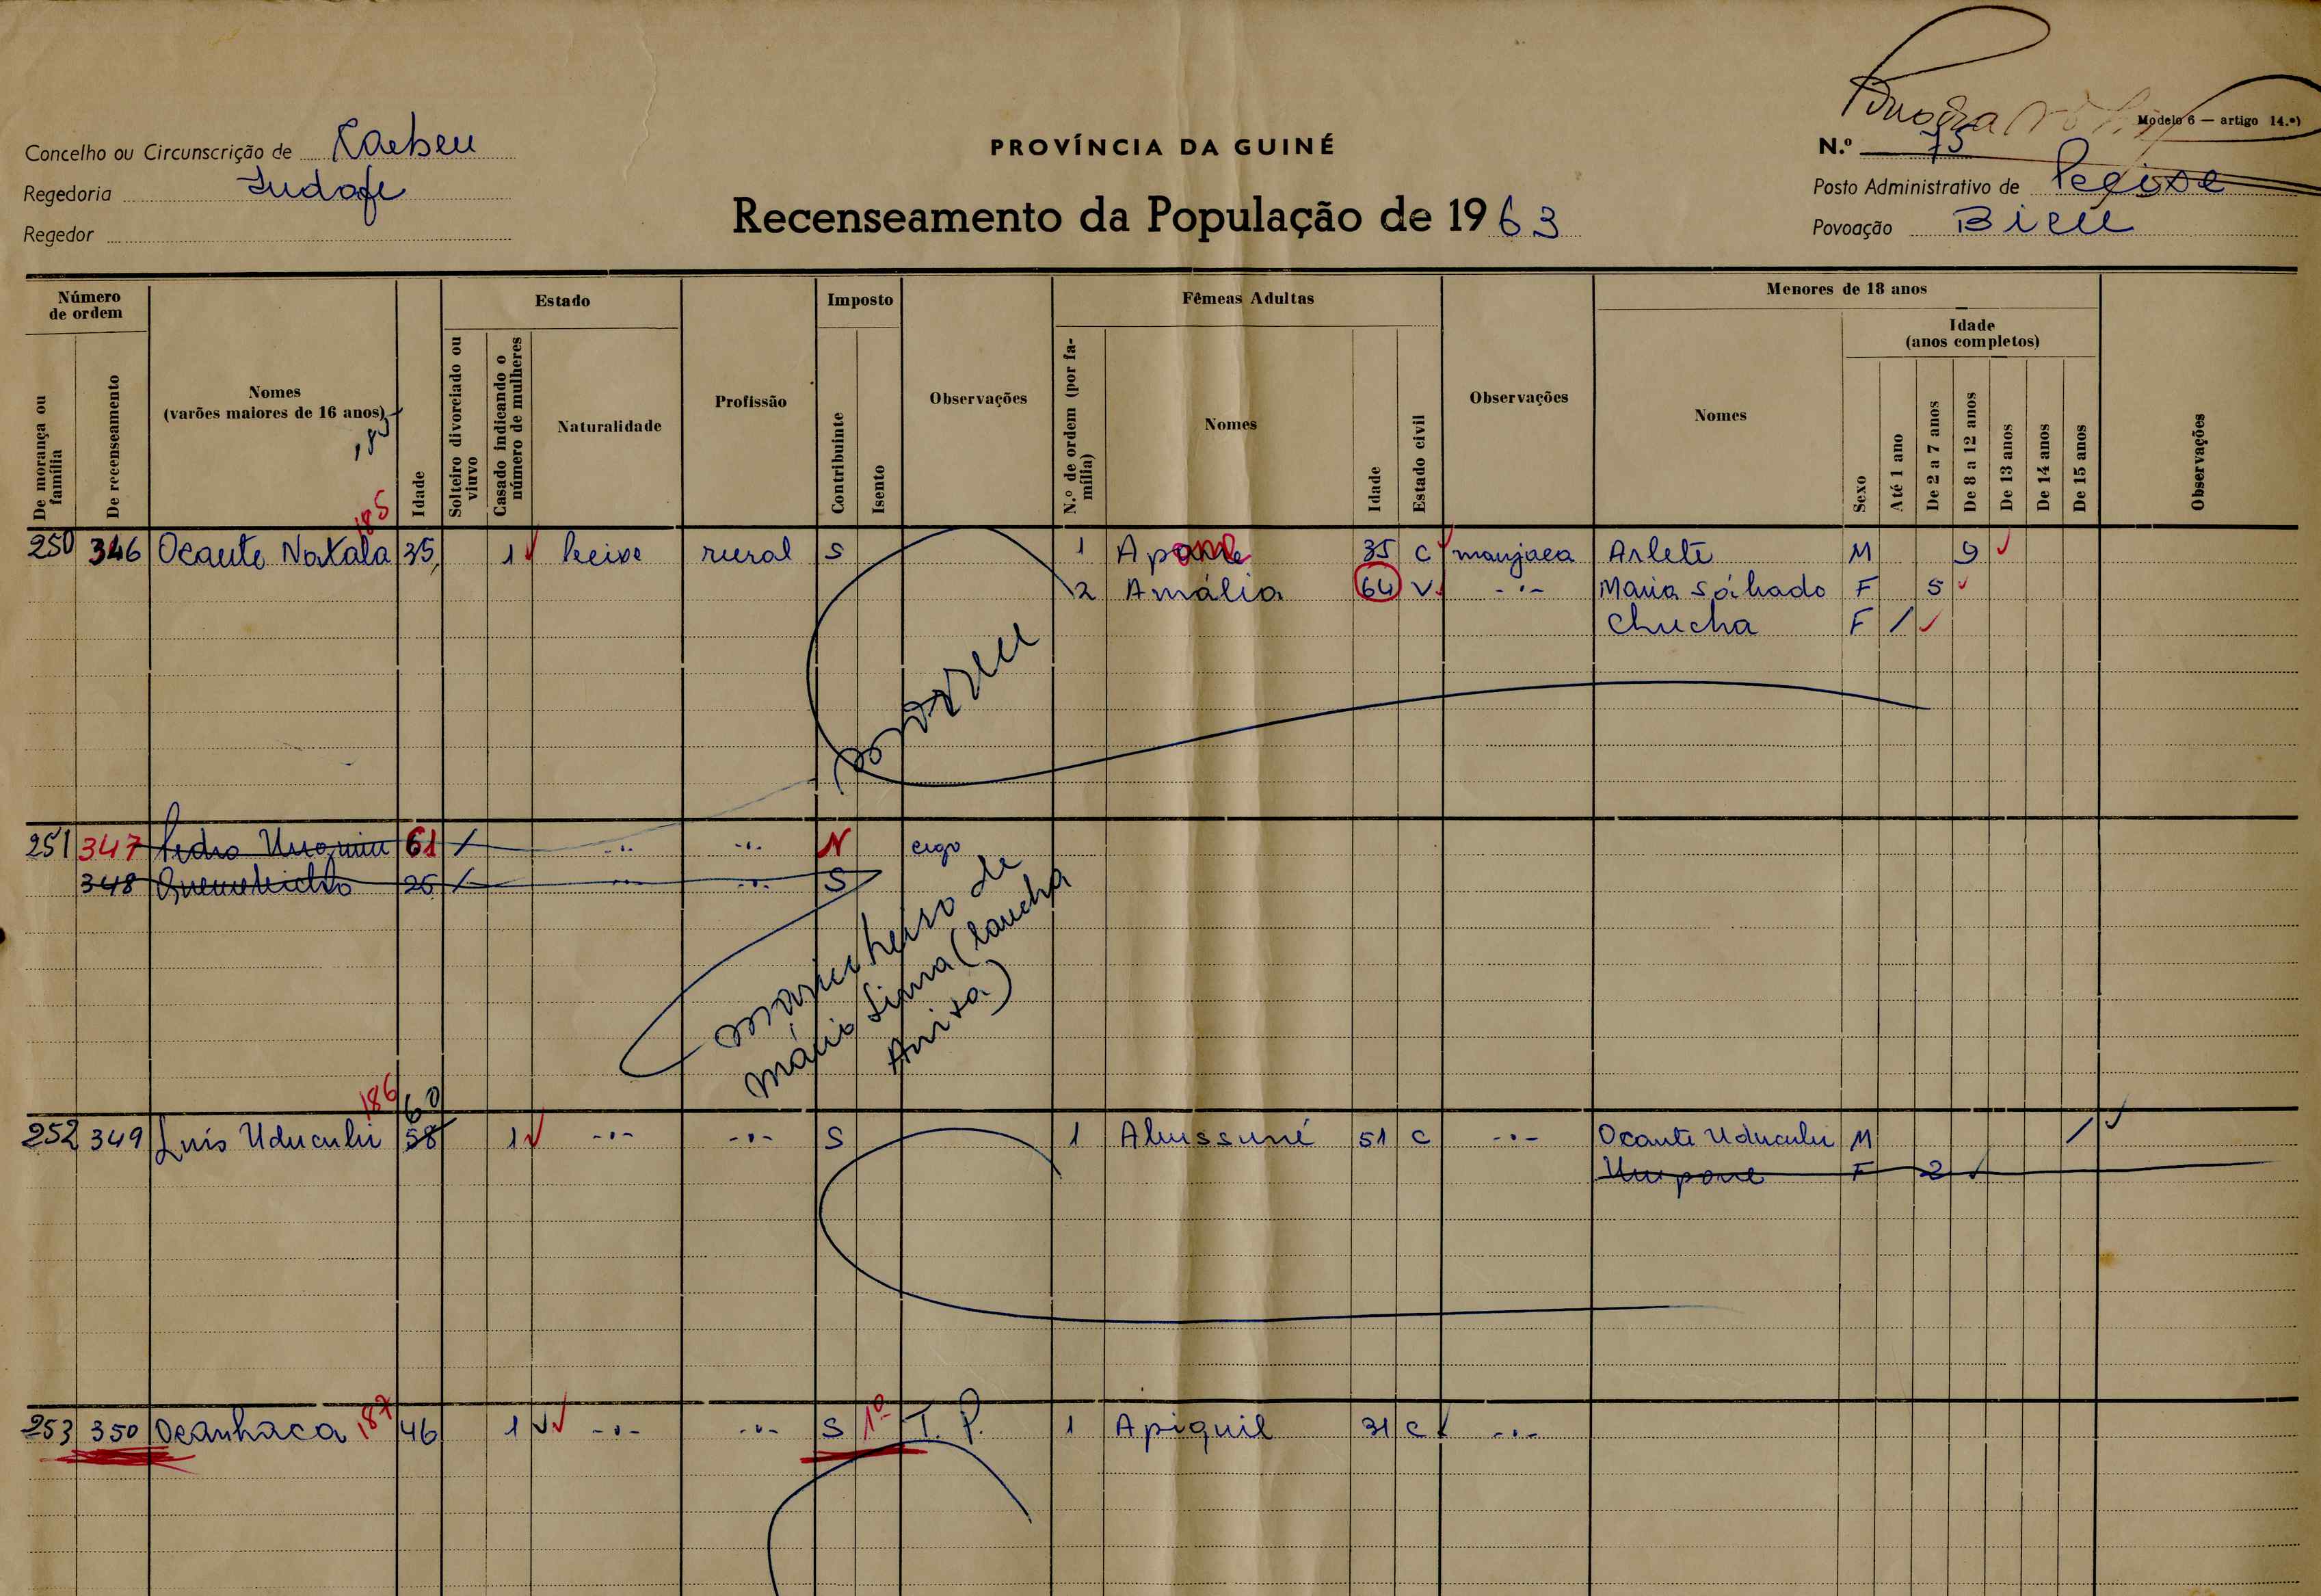 Modelo 6 — artigo 14.º)
PROVÍNCIA DA GUINÉ
Recenseamento da População de 1963
Concelho ou Circunscrição de
Regedoria
Regedor
N.º 75
Posto Administrativo de
Povoação
Número de ordem
De morança ou família
De recenseamento
Nomes
(varões maiores de 16 anos)
185
Idade
Estado
Solteiro divorciado ou viuvo
Casado indicando o número de mulheres
Naturalidade
Profissão
Imposto
Contribuinte
Isento
Observações
Fêmeas Adultas
N.º de ordem (por família)
Nomes
Idade
Estado civil
Observações
Menores de 18 anos
Nomes
Idade
(anos completos)
Sexo
Até 1 ano
De 2 a 7 anos
De 8 a 12 anos
De 13 anos
De 14 anos
De 15 anos
Observações
250 346 Ocante Natala 35 1 rural S 1 35 C manjaca Arlete M 9
2 Amália 64 V -·- Maria Sábado F 5
Chucha F /
morreu
251 347 Pedro 61 / -·- -·- N cego
348 26 / -·- -·- S
de
186 60
252 349 Luís 58 1 -·- -·- S 1 51 C -·- Ocante M /
F 2
253 350 Ocanhaca 187 46 1 -·- -·- S 1º T. P. 1 Apiquil 31 C -·-